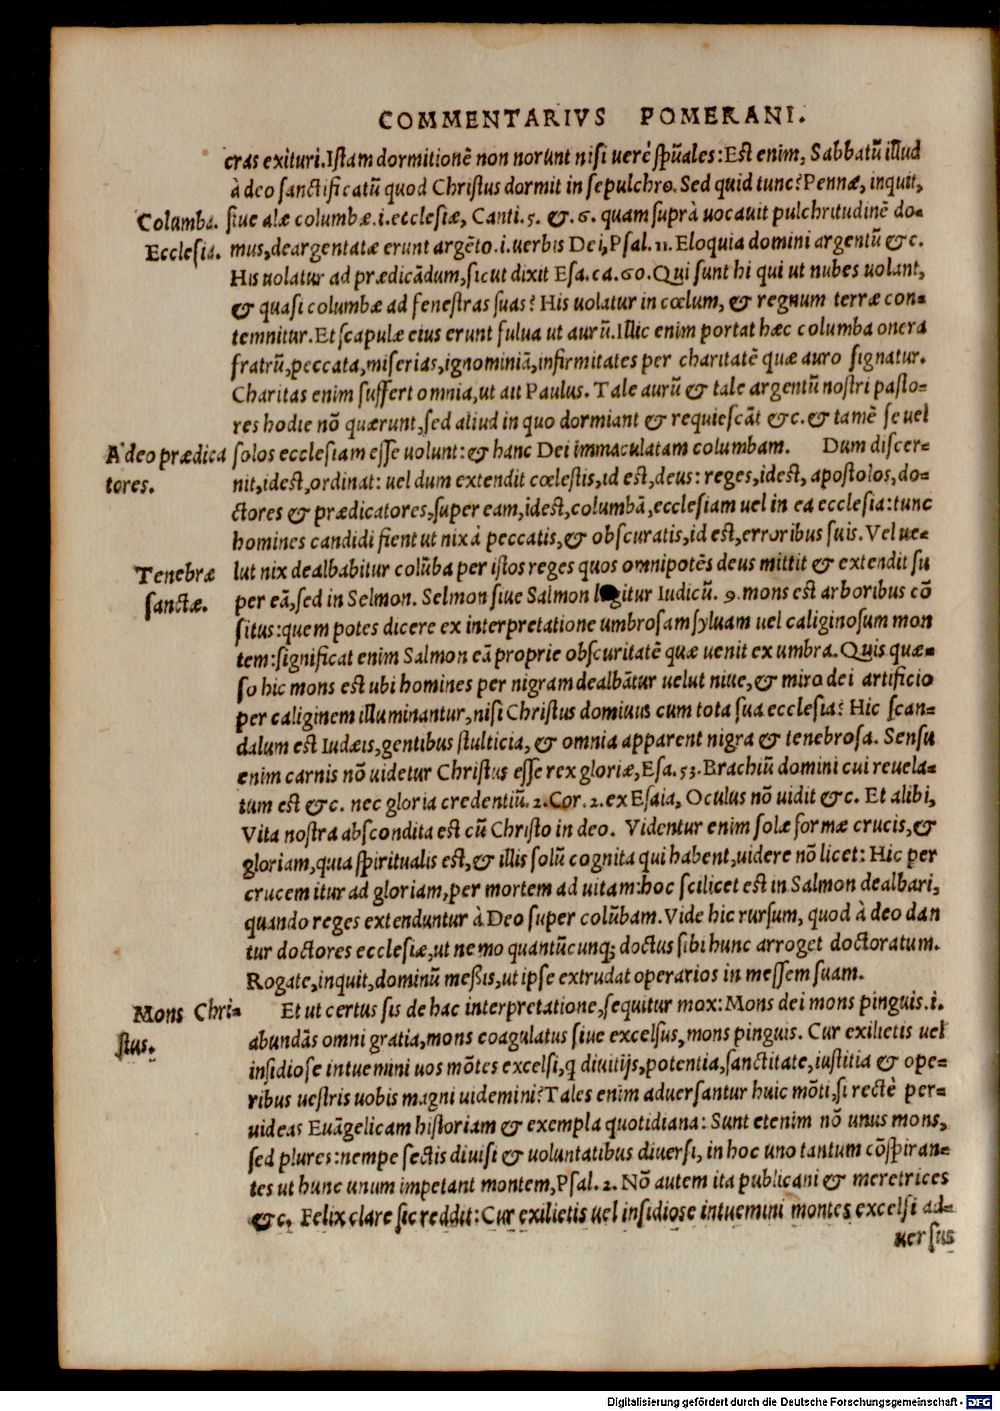 COMMENTARIVS POMERANI.
cras exituri. Istam dormitionē non norunt nisi uerè spũales: Est enim, Sabbatũ illud
à deo sanctificatũ quod Christus dormit in sepulchro. Sed quid tunc? Pennæ, inquit,
Columba. siue alæ columbæ .i. ecclesiæ, Canti. 5. & .6. quam suprà uocauit pulchritudinē do-
Ecclesia. mus, deargentatæ erunt argēto .i. uerbis Dei, Psal. 11. Eloquia domini argentũ &c.
His uolatur ad prædicādum, sicut dixit Esa. ca. 60. Qui sunt hi qui ut nubes uolant,
& quasi columbæ ad fenestras suas? His uolatur in cœlum, & regnum terræ con-
temnitur. Et scapulæ eius erunt fulua ut aurũ. Illic enim portat hæc columba onera
fratrũ, peccata, miserias, ignominiā, infirmitates per charitatē quæ auro signatur.
Charitas enim suffert omnia, ut ait Paulus. Tale aurũ & tale argentũ nostri pasto-
res hodie nō quærunt, sed aliud in quo dormiant & requiescāt &c. & tamē se uel
A deo prædica solos ecclesiam esse uolunt: & hanc Dei immaculatam columbam. Dum discer-
tores. nit, idest, ordinat: uel dum extendit cœlestis, id est, deus: reges, idest, apostolos, do-
ctores & prædicatores, super eam, idest, columbā, ecclesiam uel in ea ecclesia: tunc
homines candidi fient ut nix à peccatis, & obscuratis, id est, erroribus suis. Vel ue-
Tenebræ lut nix dealbabitur colũba per istos reges quos omnipotēs deus mittit & extendit su
sanctæ. per eā, sed in Selmon. Selmon siue Salmon legitur Iudicũ. 9. mons est arboribus cō
situs: quem potes dicere ex interpretatione umbrosam syluam uel caliginosum mon
tem: significat enim Salmon eā proprie obscuritatē quæ uenit ex umbra. Quis quæ-
so hic mons est ubi homines per nigram dealbātur uelut niue, & miro dei artificio
per caliginem illuminantur, nisi Christus dominus cum tota sua ecclesia? Hic scan-
dalum est Iudæis, gentibus stulticia, & omnia apparent nigra & tenebrosa. Sensu
enim carnis nō uidetur Christus esse rex gloriæ, Esa. 53. Brachiũ domini cui reuela-
tum est &c. nec gloria credentiũ. 2. Cor. 2. ex Esaia, Oculus nō uidit &c. Et alibi,
Vita nostra abscondita est cũ Christo in deo. Videntur enim solæ formæ crucis, &
gloriam, quia spiritualis est, & illis solũ cognita qui habent, uidere nō licet: Hic per
crucem itur ad gloriam, per mortem ad uitam: hoc scilicet est in Salmon dealbari,
quando reges extenduntur à Deo super colũbam. Vide hic rursum, quod à deo dan
tur doctores ecclesiæ, ut nemo quantũcunq; doctus sibi hunc arroget doctoratum.
Rogate, inquit, dominũ meßis, ut ipse extrudat operarios in messem suam.
Mons Chri- Et ut certus sis de hac interpretatione, sequitur mox: Mons dei mons pinguis .i.
stus. abundās omni gratia, mons coagulatus siue excelsus, mons pinguis. Cur exilietis uel
insidiose intuemini uos mōtes excelsi, q diuitijs, potentia, sanctitate, iustitia & ope-
ribus uestris uobis magni uidemini? Tales enim aduersantur huic mōti, si rectè per-
uideas Euāgelicam historiam & exempla quotidiana: Sunt etenim nō unus mons,
sed plures: nempe sectis diuisi & uoluntatibus diuersi, in hoc uno tantum cōspiran-
tes ut hunc unum impetant montem, Psal. 2. Nō autem ita publicani & meretrices
&c. Felix clare sic reddit: Cur exilietis uel insidiose intuemini montes excelsi ad-
uersus
Digitalisierung gefördert durch die Deutsche Forschungsgemeinschaft - DFG